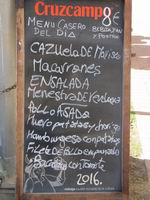 Cruzcampo 8€
MENU CASERO BEBIDA, PAN
DEL DÍA Y POSTRE
CAZUELA DE MARISCO
MACARRONES
ENSALADA
MENESTRA DE VERDURA
POLLO ASADO
Huevo patatas y chorizo
Hamburguesa con patatas
Filete de Pollo empanado
con Tomate
2016